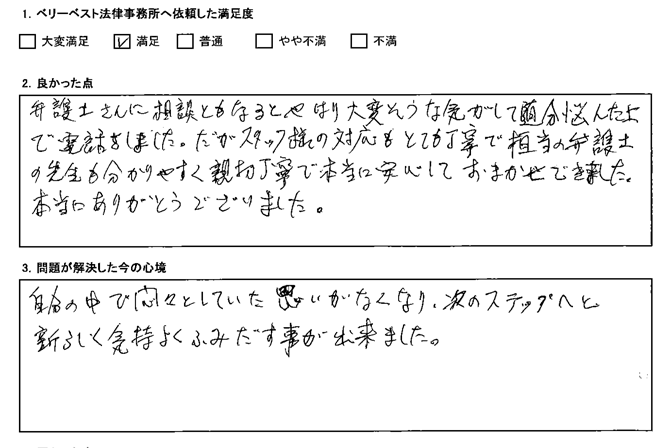 1. ベリーベスト法律事務所へ依頼した満足度
大変満足 満足 普通 やや不満 不満
2. 良かった点
弁護士さんに相談ともなるとやはり大変そうな気がして随分悩んだ上
で電話をしました。だがスタッフ様の対応もとても丁寧で担当の弁護士
の先生も分かりやすく親切丁寧で本当に安心しておまかせできました。
本当にありがとうございました。
3. 問題が解決した今の心境
自分の中で悶々としていた思いがなくなり、次のステップへと
新しく気持よくふみだす事が出来ました。